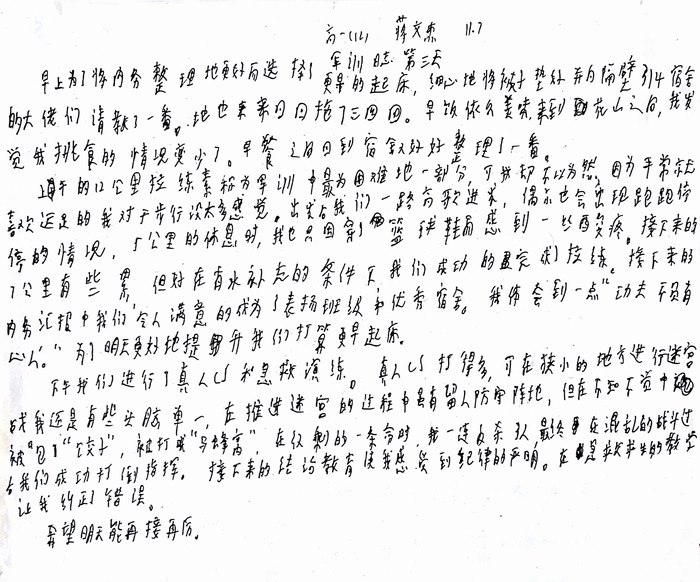 高一(12) 蒋文杰 11.7
军训日志 第三天
早上为了将内务整理地更好而选择了更早的起床,细心地将被子垫好并向隔壁314宿舍
的大佬们请教了一番。地也来来回回拖了三四回。早饭依么美味,来到花山之后,我发
觉我挑食的情况变少了。早餐之后回到宿舍又好好整理了一番。
上午的12公里拉练素称为军训中最为困难地一部分,可我却不以为然,因为平常就
喜欢远足的我对于步行没太多感觉。出发后我们一路高歌进来,偶尔也会出现跑跑停
停的情况,5公里的休息时,我也只因穿了篮球鞋而感到一些酸疼。接下来的
7公里有些累,但好在有水补志的条件下我们成功的完成了拉练。接下来的
内务汇报中我们令人满意的成为了表扬班级和优秀宿舍。我体会到一点“功夫不负有
心人”。为了明天更好地提升我们打算更早起床。
下午我们进行了真人CS和急救演练。真人CS打得多,可在狭小的地方进行迷宫
战我还是有些头脑单一,在推进迷宫的过程中虽有留人防守阵地,但在不知不觉中
被包了“饺子”,被打成“马蜂窝”,在仅剩的一条命时,我一连反杀3人,最终在混乱的战斗过
后我们成功打倒指挥。接下来的结论教育使我感受到纪律的严明。在急救求生的教学
让我纠正了错误。
希望明天能再接再厉。